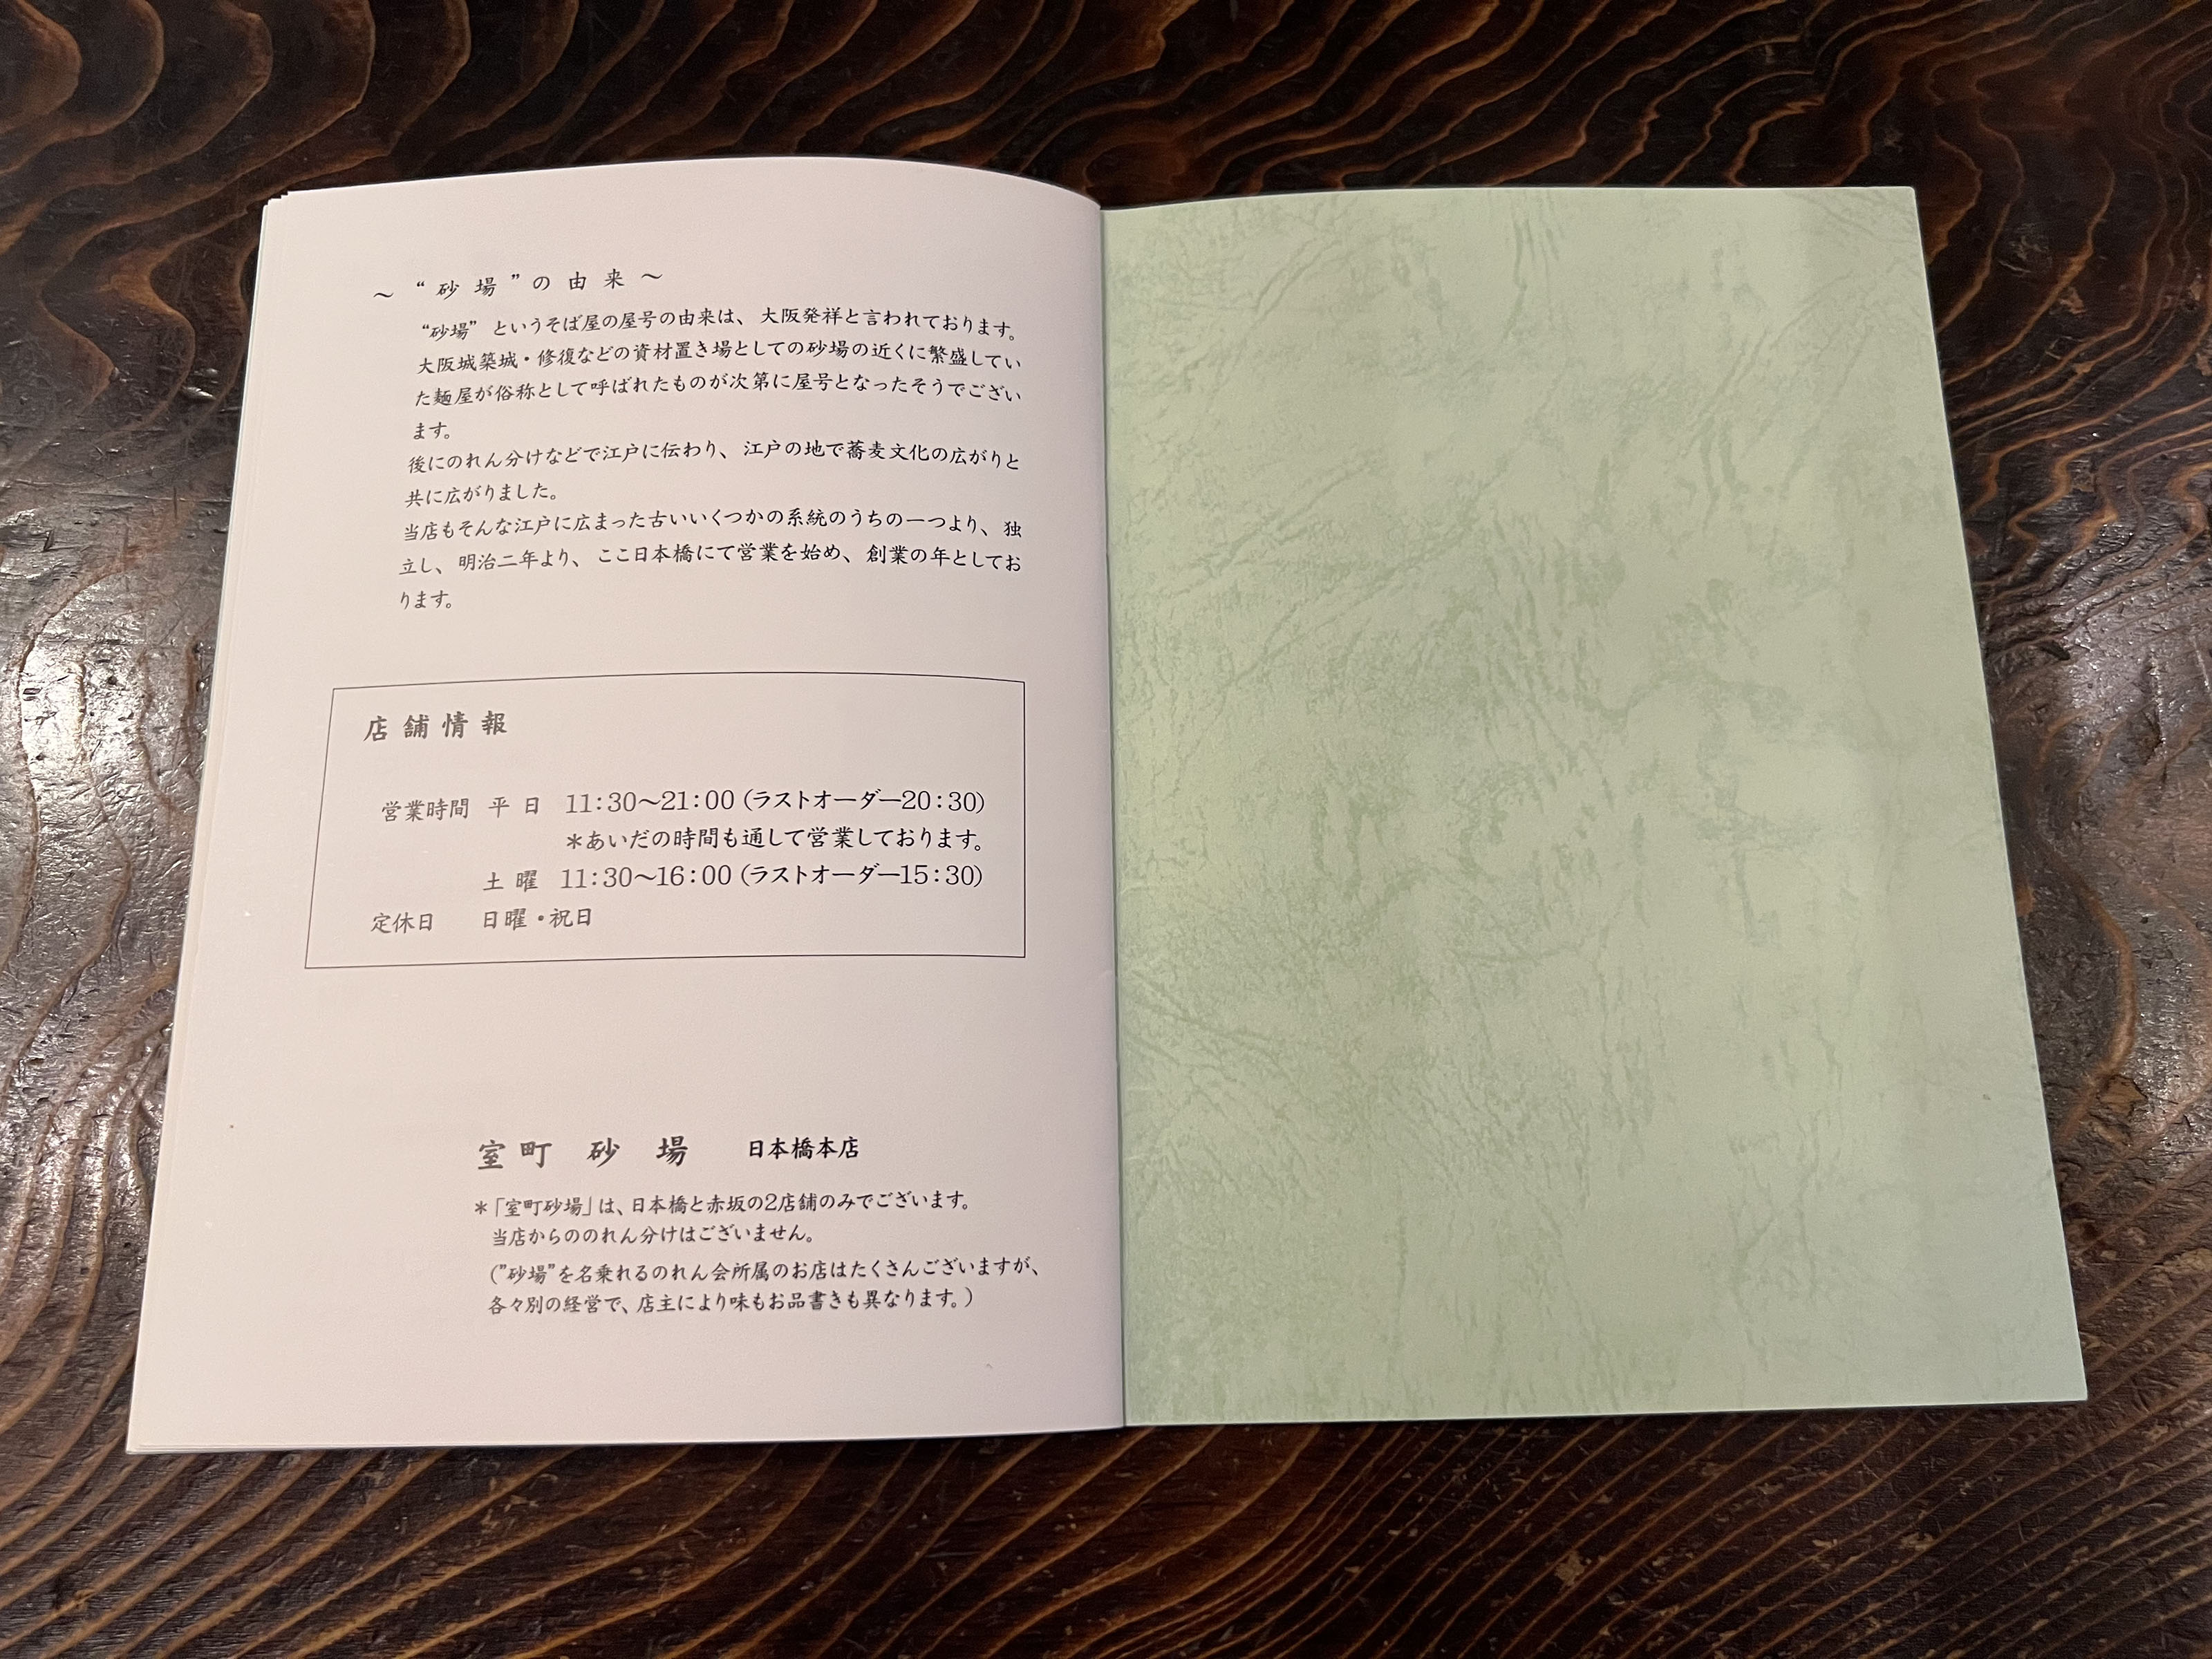 ～ “砂場”の由来～
“砂場” というそば屋の屋号の由来は、大阪発祥と言われております。
大阪城築城・修復などの資材置き場としての砂場の近くに繁盛してい
た麺屋が俗称として呼ばれたものが次第に屋号となったそうでござい
ます。
後にのれん分けなどで江戸に伝わり、江戸の地で蕎麦文化の広がりと
共に広がりました。
当店もそんな江戸に広まった古いいくつかの系統のうちの一つより、独
立し、明治二年より、ここ日本橋にて営業を始め、創業の年としてお
ります。
店舗情報
営業時間 平日 11:30～21:00（ラストオーダー20:30）
＊あいだの時間も通して営業しております。
土曜 11:30～16:00（ラストオーダー15:30）
定休日 日曜・祝日
室町 砂場 日本橋本店
＊「室町砂場」は、日本橋と赤坂の2店舗のみでございます。
当店からののれん分けはございません。
（”砂場”を名乗れるのれん会所属のお店はたくさんございますが、
各々別の経営で、店主により味もお品書きも異なります。）